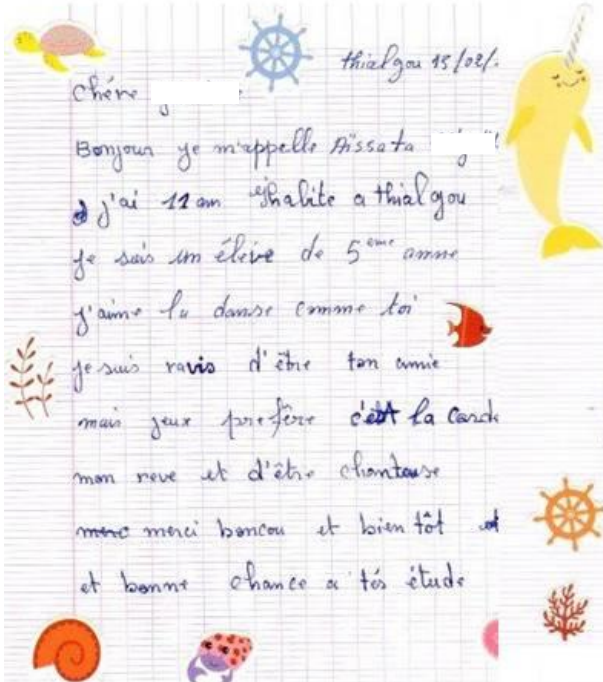 thialgou 15/02/.
Chére
Bonjour je m'appelle Aïssata
j'ai 11 an j'habite a thialgou
je suis un élève de 5 eme anne
j'aime la danse comme toi
je suis ravis d'être ton amie
mais jeux prefère c'est la Corde
mon reve et d'être chanteuse
merci boncou et bien tôt
et bonne chance a tés étude